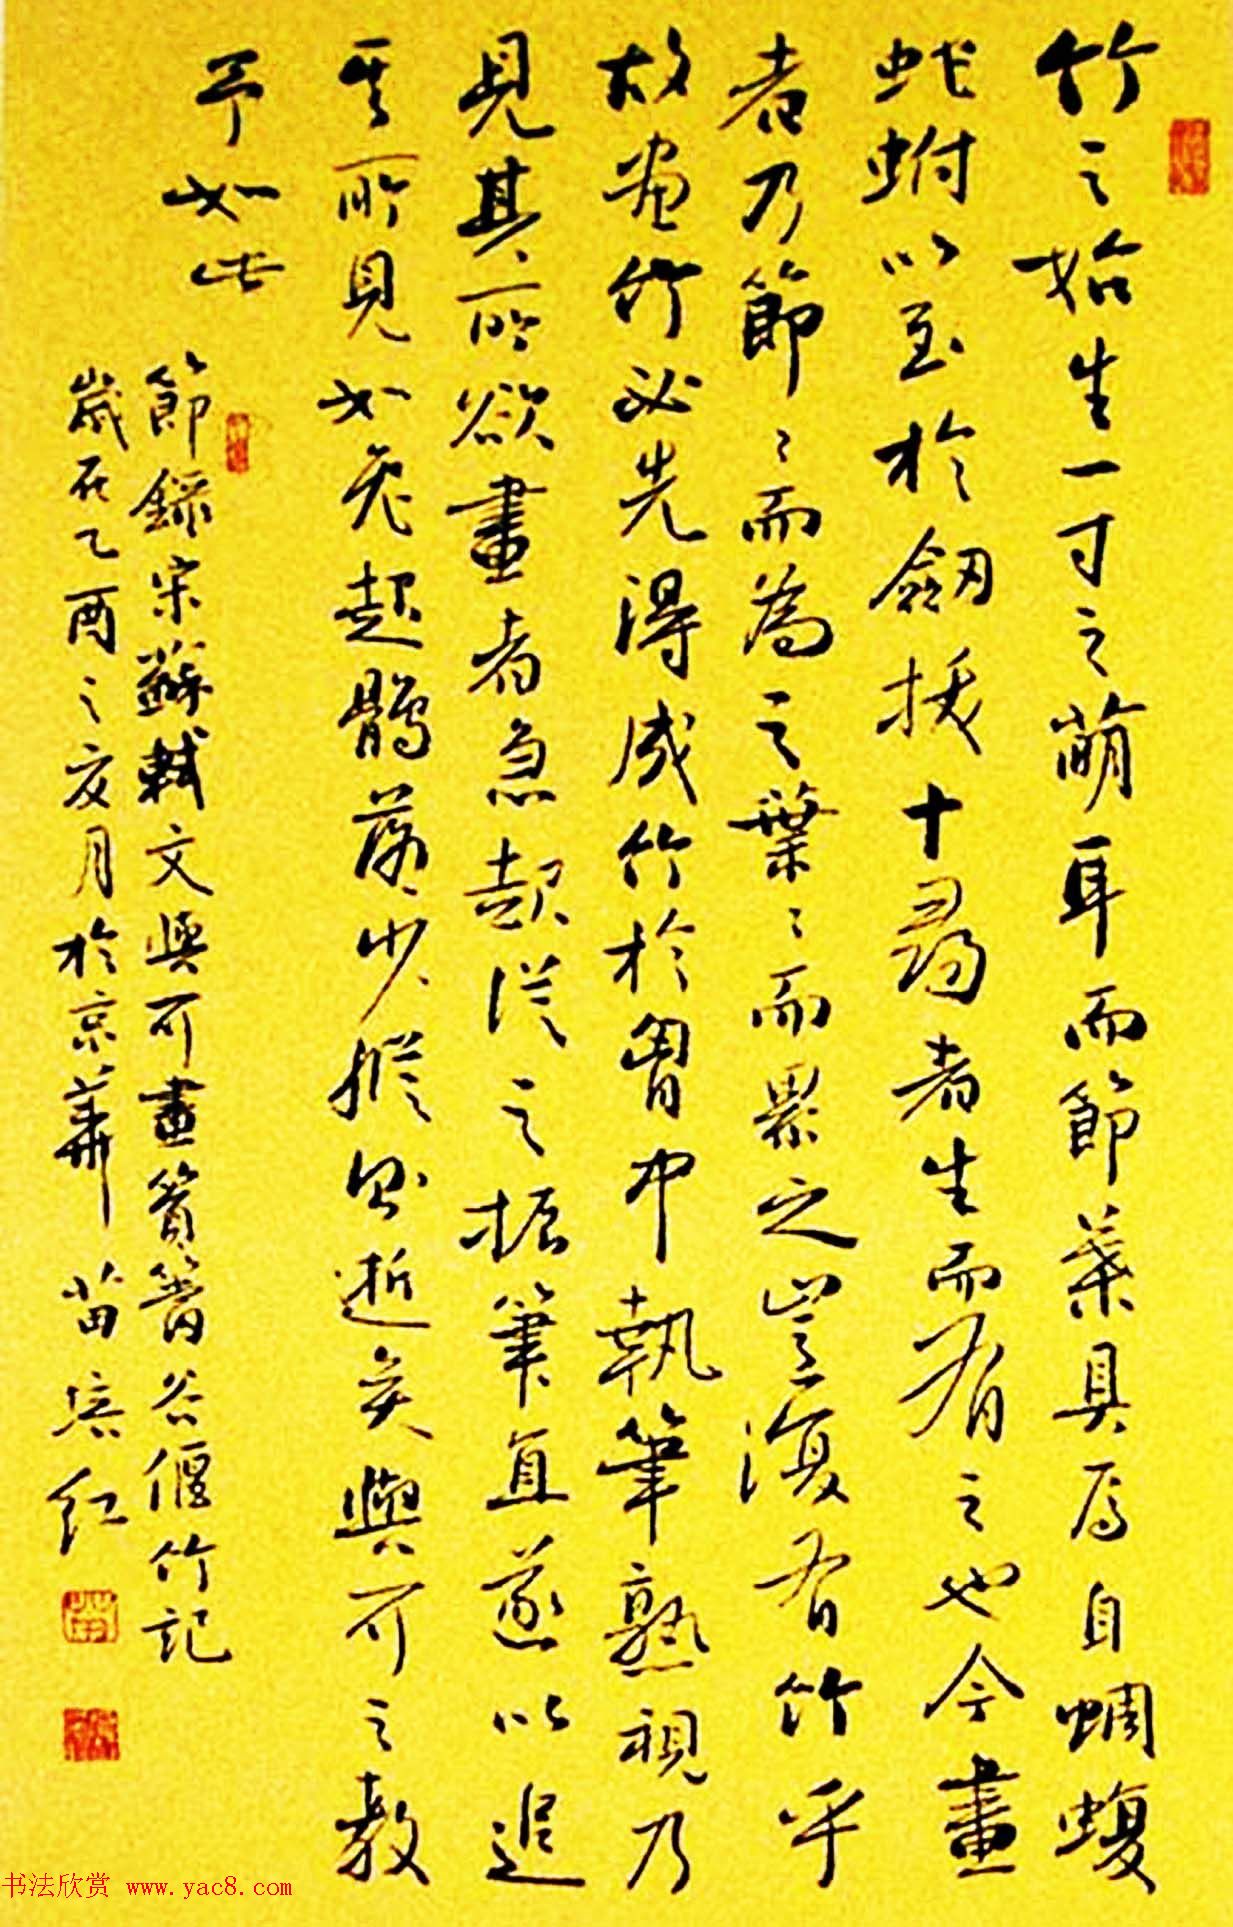 竹之始生一寸之萌耳而節葉具焉自蜩蝮
蛇蚹以至於劒拔十尋者生而有之也今畫
者乃節〻而為之葉〻而累之豈復有竹乎
故畫竹必先得成竹於胷中執筆熟視乃
見其所欲畫者急起從之振筆直遂以追
其所見如兔起鶻落少縱則逝矣與可之教
予如此
節録宋蘇軾文與可畫篔簹谷偃竹記
歲在乙酉之夏月於京華苗培紅
书法欣赏 www.yac8.com